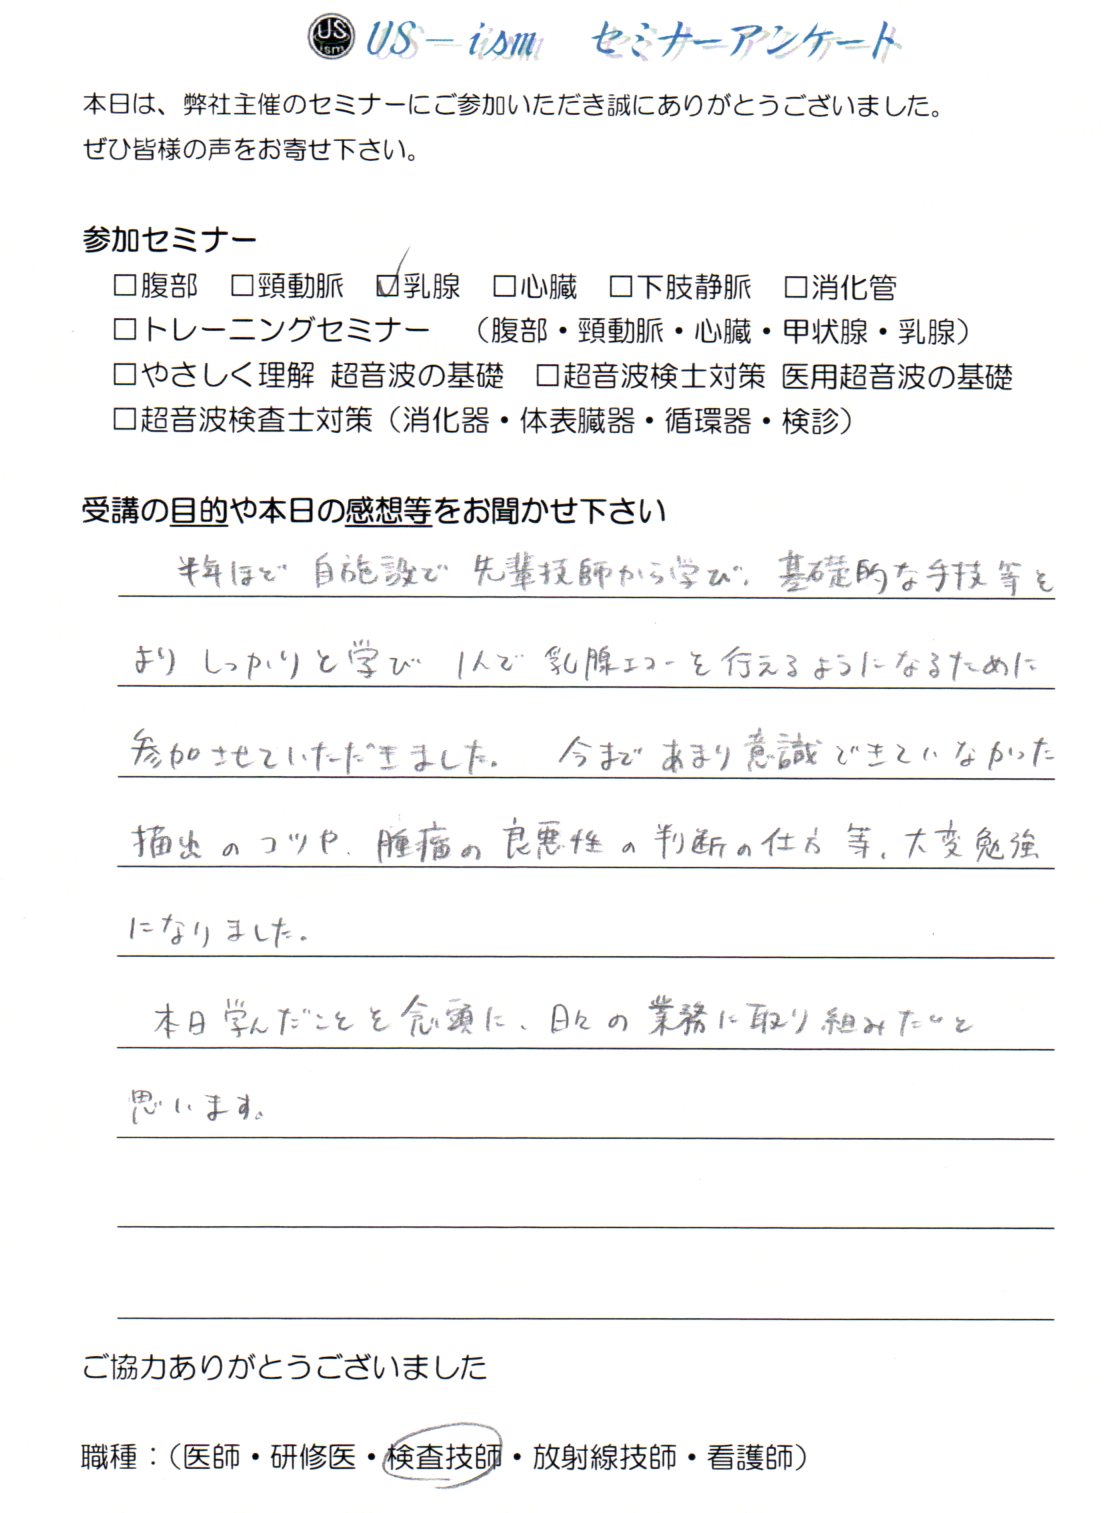 US ism US－ism セミナーアンケート
本日は、弊社主催のセミナーにご参加いただき誠にありがとうございました。
ぜひ皆様の声をお寄せ下さい。
参加セミナー
□腹部 □頸動脈 ☑乳腺 □心臓 □下肢静脈 □消化管
□トレーニングセミナー （腹部・頸動脈・心臓・甲状腺・乳腺）
□やさしく理解 超音波の基礎 □超音波検士対策 医用超音波の基礎
□超音波検査士対策（消化器・体表臓器・循環器・検診）
受講の目的や本日の感想等をお聞かせ下さい
半年ほど自施設で先輩技師から学び、基礎的な手技等を
よりしっかりと学び1人で乳腺エコーを行えるようになるために
参加させていただきました。 今まであまり意識できていなかった
描出のコツや、腫瘤の良悪性の判断の仕方等、大変勉強
になりました。
本日学んだことを念頭に、日々の業務に取り組みたいと
思います。
ご協力ありがとうございました
職種：（医師・研修医・検査技師・放射線技師・看護師）